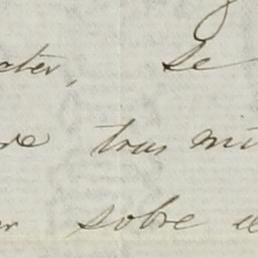 cter, Se
re tras mi
r sobre e